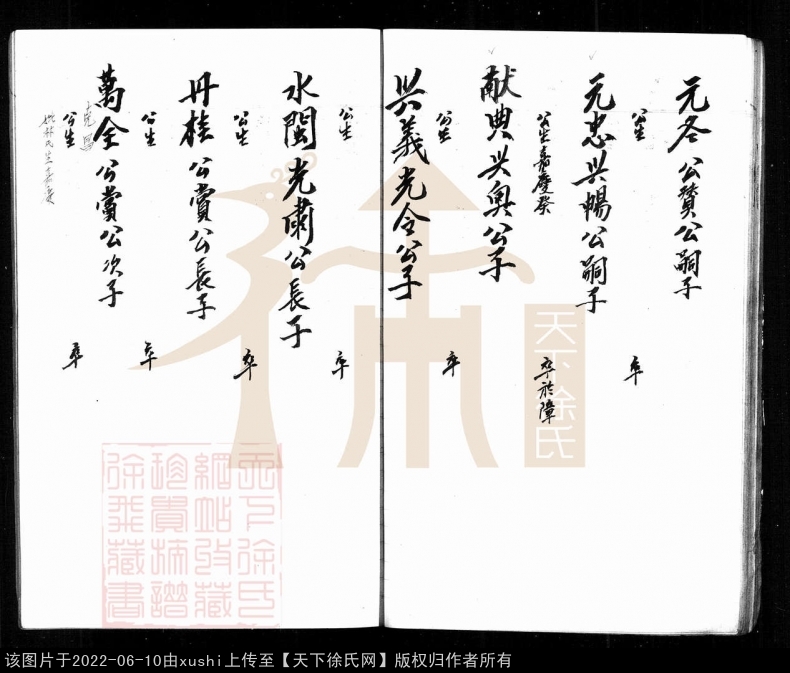 元冬公贊公嗣子
公生
卒
元忠兴暢公嗣子
公生嘉慶癸
卒於障
献典兴奥公子
公生
卒
兴義光全公子
公生
卒
水閩光肅公長子
公生
卒
丹桂公賞公長子
公生
卒
萬全公賞公次子
公生
卒
天下徐氏
天下徐氏
網站收藏
珍貴族譜
徐飛藏書
该图片于2022-06-10由xushi上传至【天下徐氏网】版权归作者所有